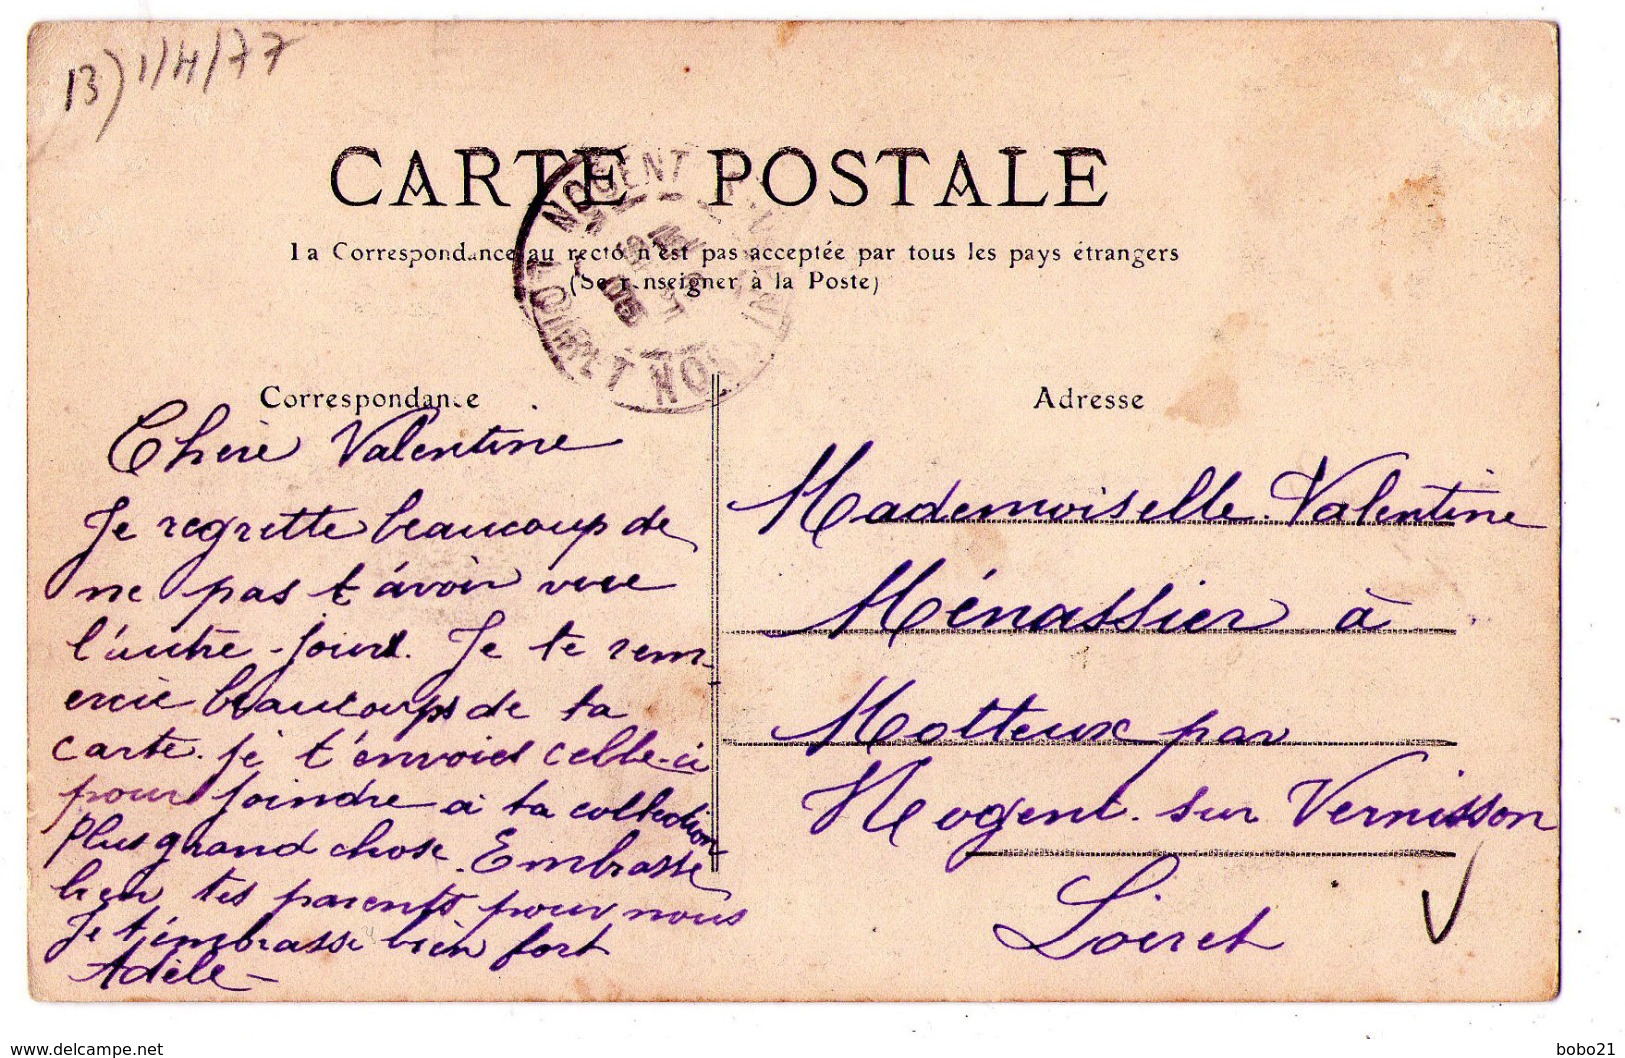 B) 1/4/77
CARTE POSTALE
La Correspondance au recto n'est pas acceptée par tous les pays étrangers
(Se renseigner à la Poste)
NOGENT
LOIRET
05
Correspondance
Chère Valentine
Je regrette beaucoup de
ne pas t'avoir vue
l'autre jour. Je te rem-
ercie beaucoups de ta
carte. je t'envoies celle-ci
pour joindre a ta collection
Plus grand chose. Embrasse
bien tes parents pour nous
Je t'embrasse bien fort
Adèle -
Adresse
Mademoiselle Valentine
Ménassier à
Motteux par
Nogent sur Vernisson
Loiret
www.delcampe.net
bobo21